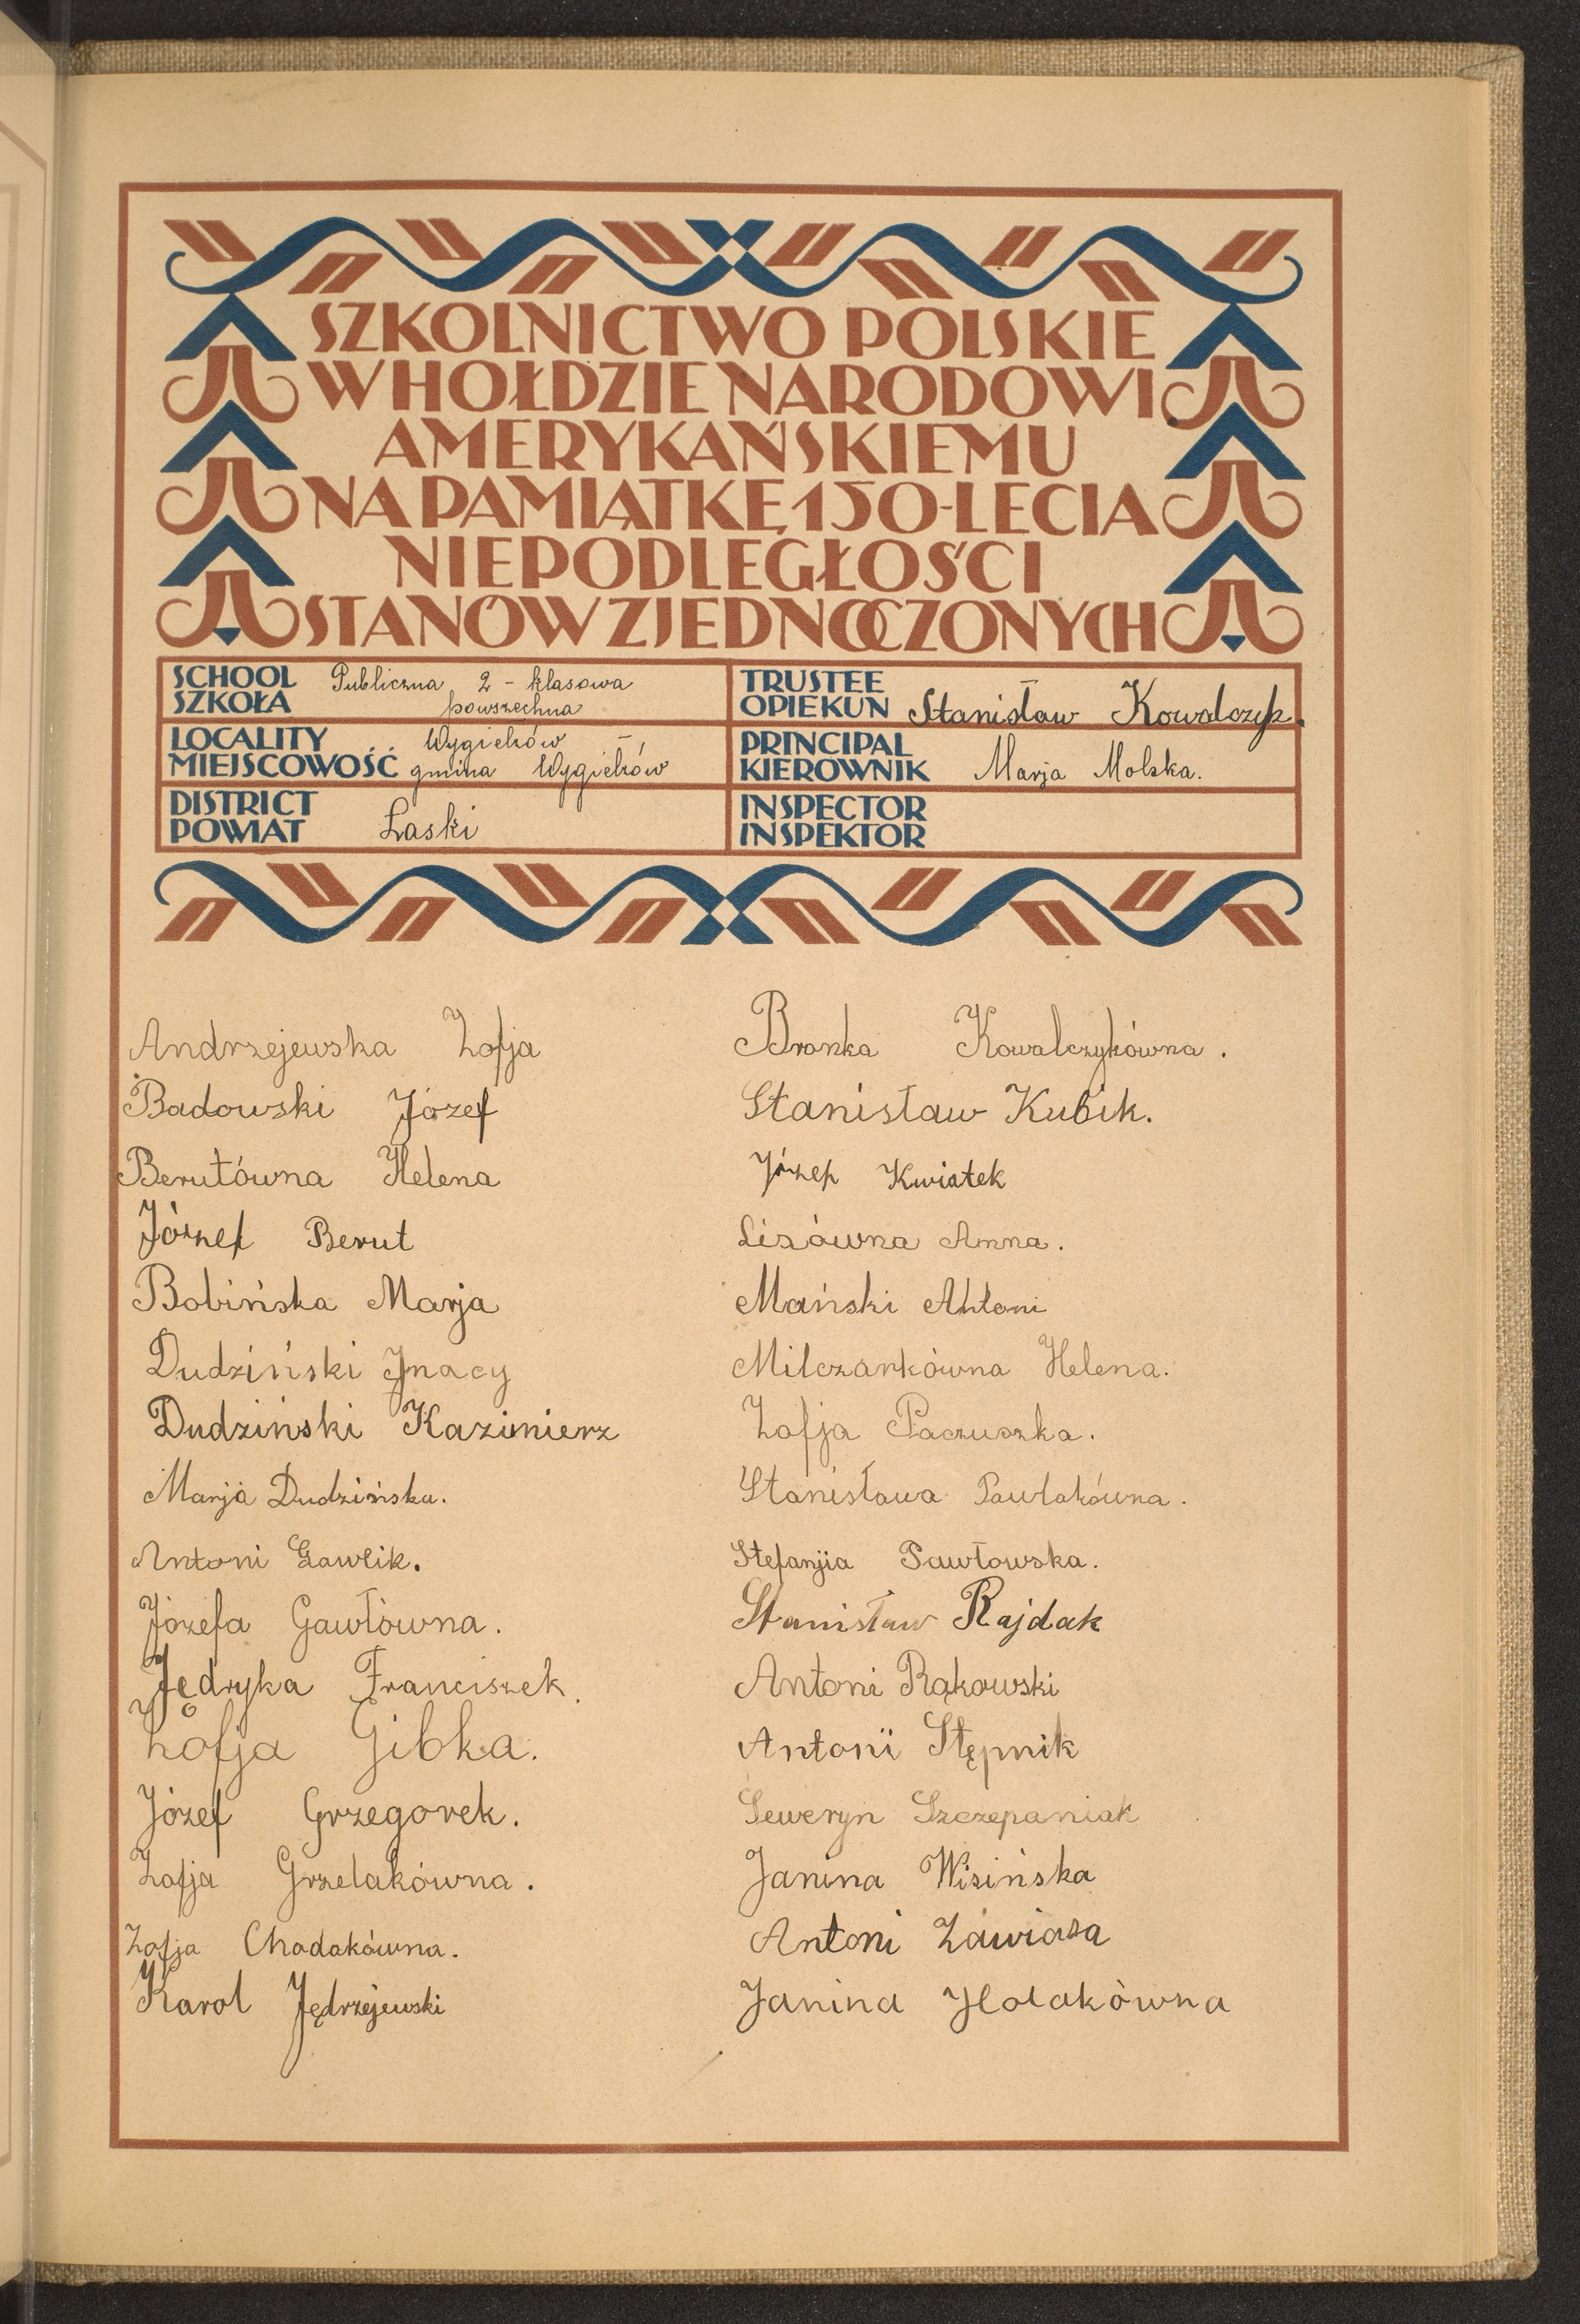 SZKOLNICTWO POLSKIE
W HOŁDZIE NARODOWI
AMERYKAŃSKIEMU
NA PAMIĄTKĘ 150-LECIA
NIEPODLEGŁOŚCI
STANÓW ZJEDNOCZONYCH
SCHOOL
SZKOŁA
Publiczna 2 - klasowa
powszechna
TRUSTEE
OPIEKUN
Stanisław Kowalczyk.
LOCALITY
MIEJSCOWOŚĆ
Wygiełzów –
gmina Wygiełzów
PRINCIPAL
KIEROWNIK
Marja Molska.
DISTRICT
POWIAT
Łaski
INSPECTOR
INSPEKTOR
Andrzejewska Zofja
Badowski Józef
Berutówna Helena
Józnef Berut
Bobińska Marja
Dudziński Jnacy
Dudziński Kazimierz
Marja Dudzińska.
Antoni Gawlik.
Józefa Gawłówna.
Jędryka Franciszek.
Zofja Gibka.
Józef Grzegorek.
Zofja Grzelakówna.
Zofja Chadakówna.
Karol Jędrzejewski
Bronka Kowalczykówna.
Stanisław Kubik.
Józep Kwiatek
Lisówna Anna.
Mański Antoni
Milczarkówna Helena.
Zofja Paczuszka.
Stanisława Pawlakówna.
Stefanjia Pawłowska.
Stanisław Rajdak
Antoni Rąkowski
Antoni Stępnik
Seweryn Szczepaniak
Janina Wisińska
Antoni Zawiasa
Janina